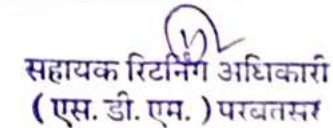 सहायक रिटर्निंग अधिकारी
( एस. डी. एम. ) परबतसर